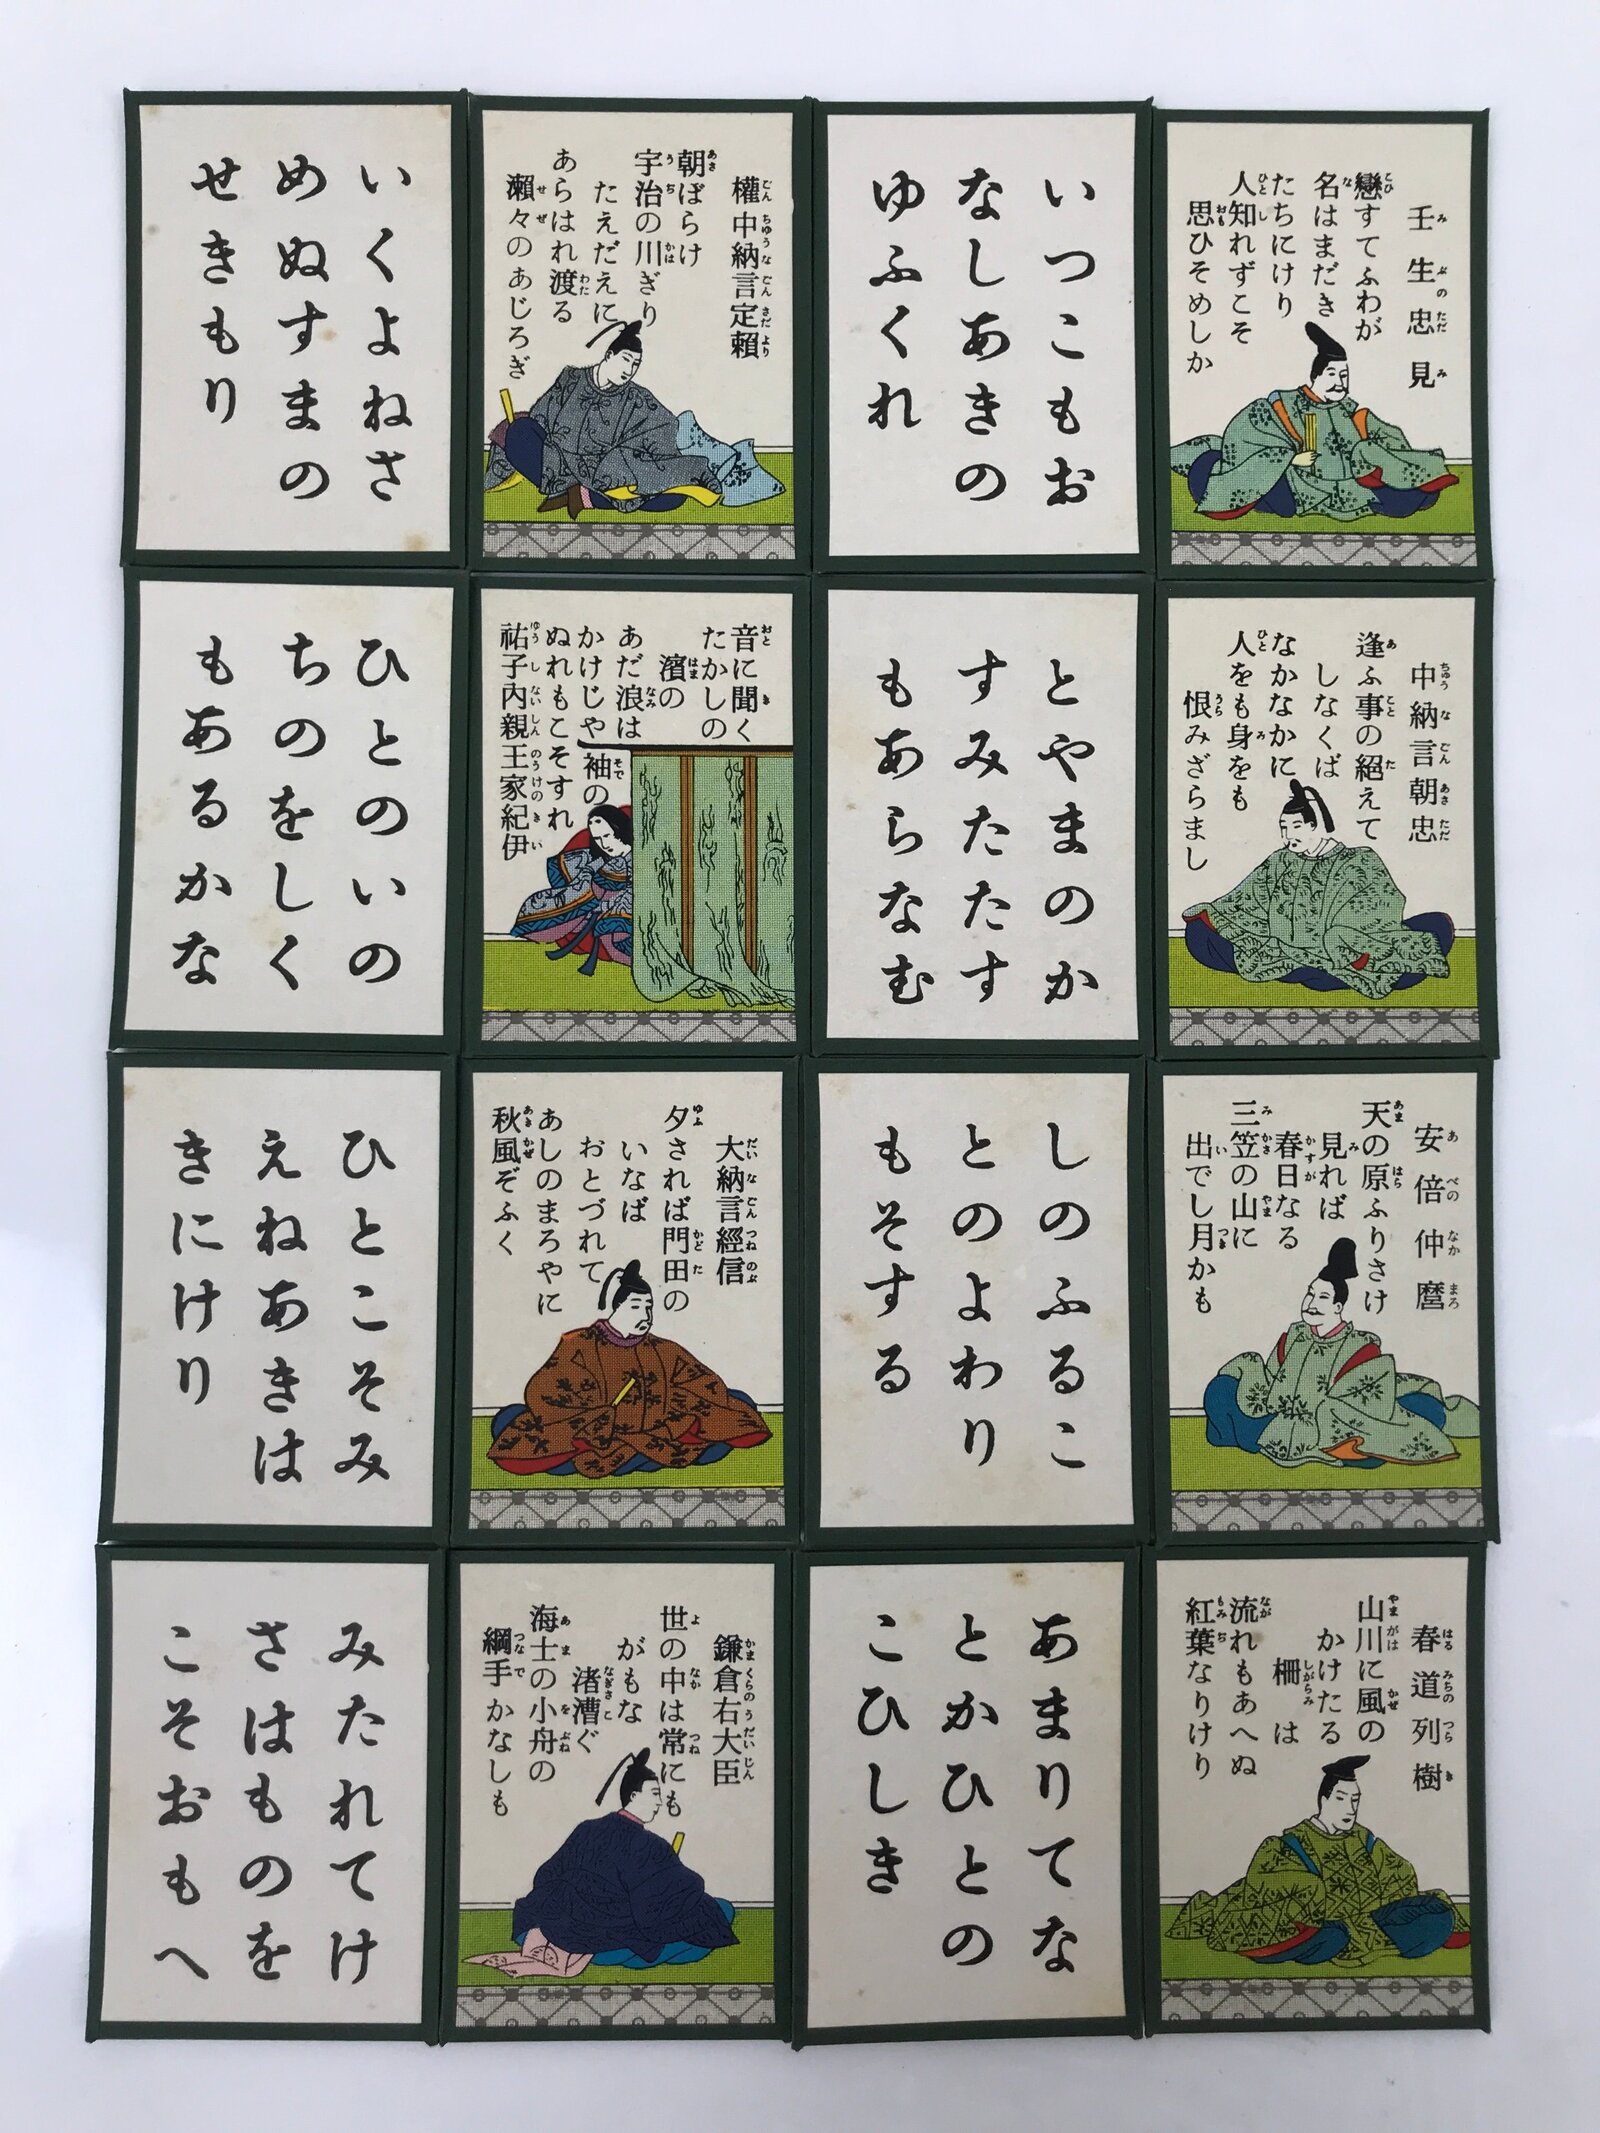 いくよねさ
めぬすまの
せきもり
權中納言定頼
朝ぼらけ
宇治の川ぎり
たえだえに
あらはれ渡る
瀬々のあじろぎ
いつこもお
なしあきの
ゆふくれ
壬生忠見
戀すてふわが
名はまだき
たちにけり
人知れずこそ
思ひそめしか
ひとのいの
ちのをしく
もあるかな
音に聞く
たかしの
濱の
あだ浪は
かけじや袖の
ぬれもこそすれ
祐子内親王家紀伊
とやまのか
すみたたす
もあらなむ
中納言朝忠
逢ふ事の絕えて
しなくば
なかなかに
人をも身をも
恨みざらまし
ひとこそみ
えねあきは
きにけり
大納言經信
夕されば門田の
いなば
おとづれて
あしのまろやに
秋風ぞふく
しのふるこ
とのよわり
もそする
安倍仲麿
天の原ふりさけ
見れば
春日なる
三笠の山に
出でし月かも
みたれてけ
さはものを
こそおもへ
鎌倉右大臣
世の中は常にも
がもな
渚漕ぐ
海士の小舟の
綱手かなしも
あまりてな
とかひとの
こひしき
春道列樹
山川に風の
かけたる
柵は
流れもあへぬ
紅葉なりけり